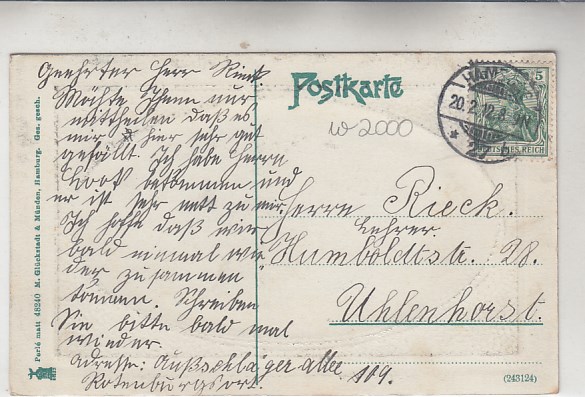 Geehrter Herr Rieck.
Möchte Ihnen nur
mittheilen daß es
mir hier sehr gut
gefällt. Ich habe Herrn
bekommen und
er ist sehr nett zu mir.
Ich hoffe daß wir
bald einmal wie
der zusammen
können. Schreiben
Sie bitte bald mal
wieder.
Adresse: Ausschläger allee
Rotenburgsort. 109.
Postkarte
W2000
HAMBURG
20.2.12.8-9N
5
DEUTSCHES REICH
Herrn Rieck.
Lehrer.
Humboldtstr. 28.
Uhlenhorst.
(243124)
Perlé matt 48240 M. Glückstadt & Münden, Hamburg. Ges. gesch.